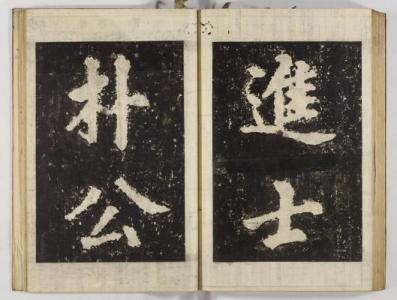 進士
朴公